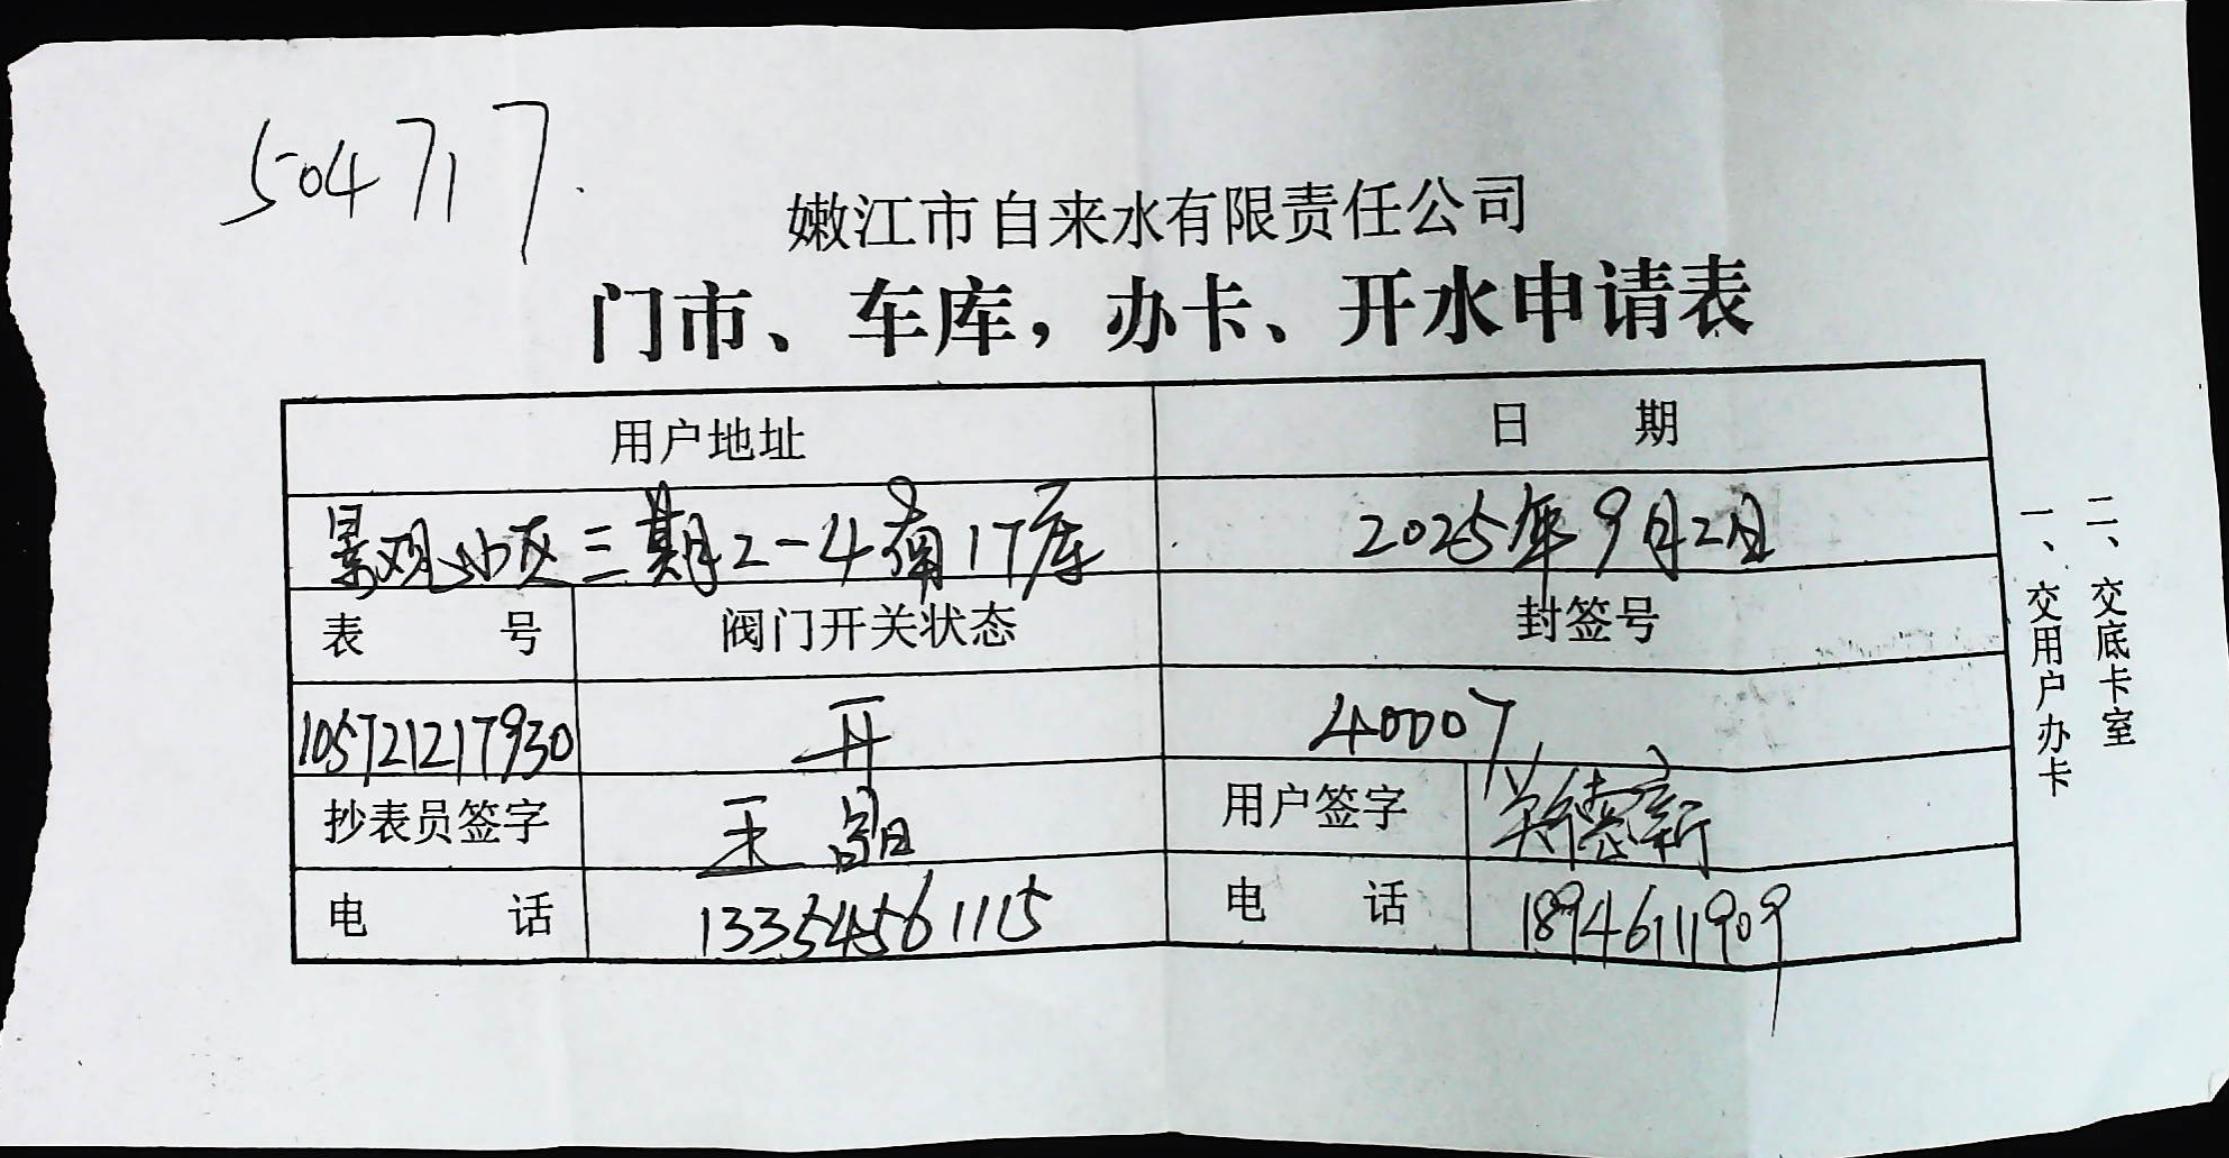 504717.
嫩江市自来水有限责任公司
门市、车库，办卡、开水申请表
用户地址 日 期
景观小区三期2-4南17库 2025年9月2日
表 号 阀门开关状态 封签号
105721217930 开 40007
抄表员签字 王晶 用户签字 关德新
电 话 13354561115 电 话 18946111909
一、交用户办卡
二、交底卡室